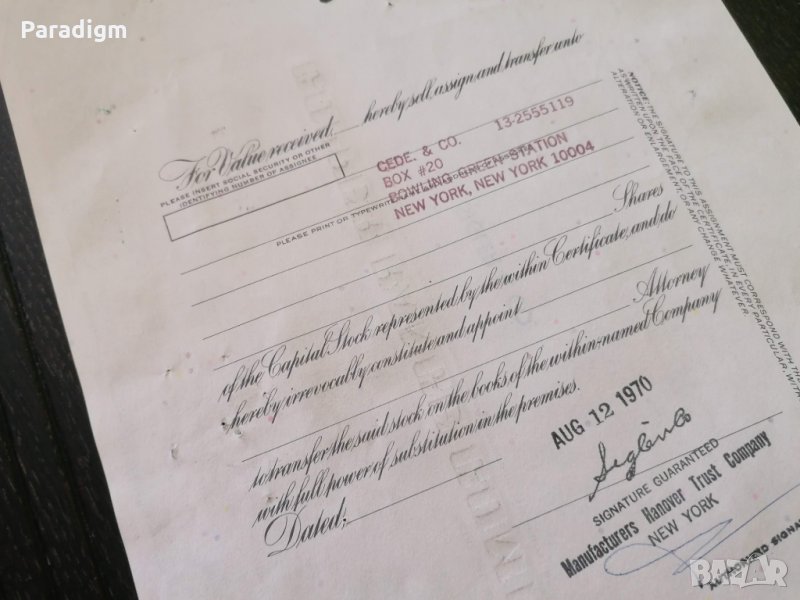 Paradigm
For Value received, hereby sell, assign and transfer unto
PLEASE INSERT SOCIAL SECURITY OR OTHER
IDENTIFYING NUMBER OF ASSIGNEE
CEDE. & CO. 13-2555119
BOX #20
BOWLING GREEN STATION
NEW YORK, NEW YORK 10004
PLEASE PRINT OR TYPEWRITE
Shares
of the Capital Stock represented by the within Certificate, and do
hereby irrevocably constitute and appoint
Attorney
to transfer the said stock on the books of the within-named Company
with full power of substitution in the premises.
Dated:
AUG 12 1970
SIGNATURE GUARANTEED
Manufacturers Hanover Trust Company
NEW YORK
AUTHORIZED SIGNA
NOTICE: THE SIGNATURE TO THIS ASSIGNMENT MUST CORRESPOND WITH THE
AS WRITTEN UPON THE FACE OF THE CERTIFICATE IN EVERY PARTICULAR, WITH
ALTERATION OR ENLARGEMENT, OR ANY CHANGE WHATEVER.
BAZAR